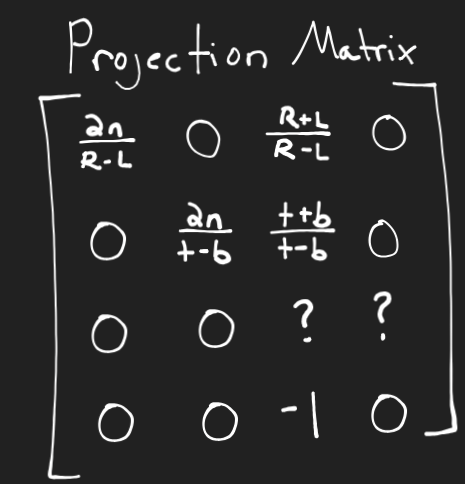 Projection Matrix
2n/R-L 0 R+L/R-L 0
0 2n/t-b t+b/t-b 0
0 0 ? ?
0 0 -1 0